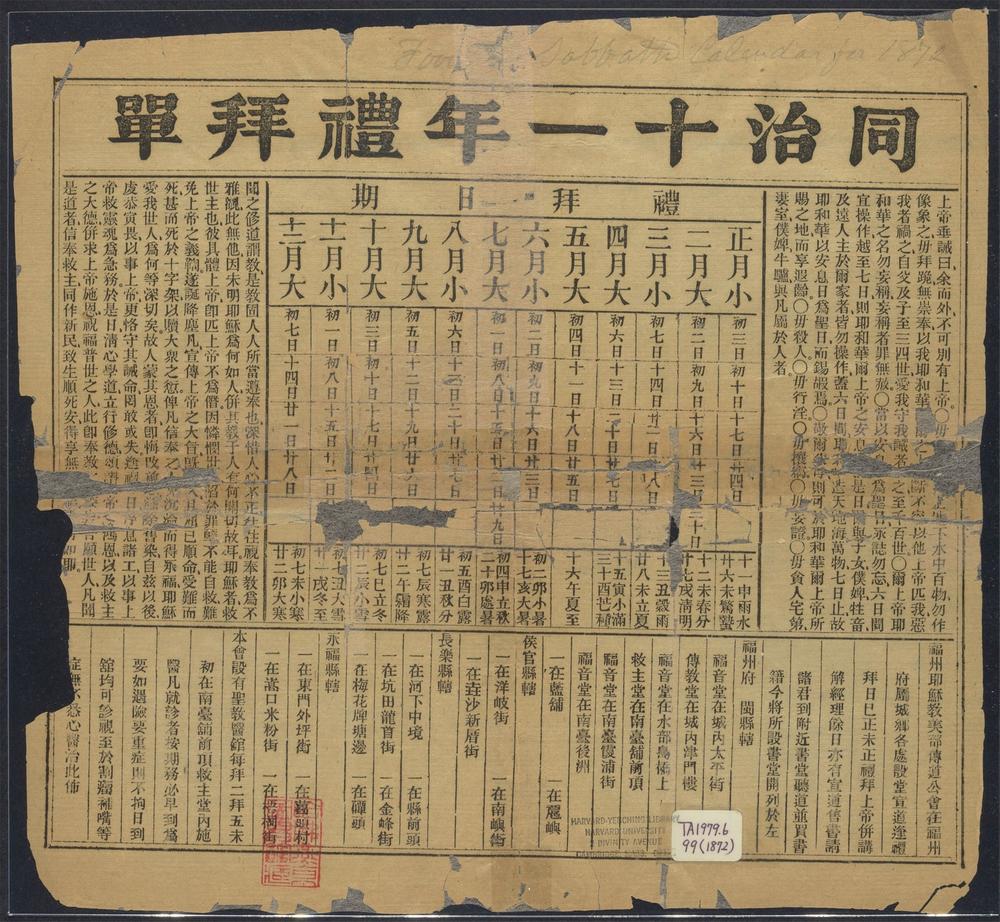 Sabbath Calendar for 1872
同治十一年禮拜單
上帝垂誡曰余而外不可別有上帝○毋 下水中百物勿作
像象之毋拜跪無崇奉以我耶和華 斷不容以他上帝匹我惡
我者禍之自父及子至三四世愛我守我誡者 之至千百世○爾上帝耶
和華之名勿妄稱妄稱者罪無赦○當以安 爲聖日永誌勿忘六日間
宜操作越至七日則耶和華爾上帝之安息 是日爾與子女僕婢牲畜
及遠人主於爾家者皆勿操作蓋六日間耶 造天地海萬物七日止故
耶和華以安息日爲聖日而錫嘏焉○敬爾 則可於耶和華爾上帝所
賜之地而享遐齡○毋殺人○毋行淫○毋攘竊○毋妄證○毋貪人宅第
妻室僕婢牛驢與凡屬於人者
禮拜日期
正月小 初三日初十日十七日廿四日 十一申雨水 廿六未驚蟄
二月大 初二日初九日十六日廿三日三十日 十二未春分 廿七戌清明
三月小 初七日十四日廿一日廿八日 十三丑穀雨 廿八未立夏
四月大 初六日十三日二十日廿七日 十五寅小滿 三十酉芒種
五月大 初四日十一日十八日廿五日 十六午夏至
六月小 初二日初九日十六日廿三日 初二卯小暑 十七亥大暑
七月大 初一日初八日十五日廿二日廿九日 初四申立秋 二十卯處暑
八月小 初六日十三日二十日廿七日 初五酉白露 廿一丑秋分
九月大 初五日十二日十九日廿六日 初七辰寒露 廿二午霜降
十月大 初三日初十日十七日廿四日 初七巳立冬 廿二辰小雪
十一月小 初一日初八日十五日廿二日 初七丑大雪 廿一戌冬至
十二月大 初七日十四日廿一日廿八日 初七未小寒 廿二卯大寒
聞之修道謂教是教固人人所當遵奉也深惜人心不正往往視奉教爲不
雅觀此無他因未明耶穌爲何如人併其教于人有何關切故耳耶穌者救
世主也彼具體上帝卽匹上帝不爲僭因憐憫世 陷於罪孽不能自救難
免上帝之義罰遂誕降塵凡宣傳上帝之大 已順命受難而
死甚而死於十字架以贖大衆之愆俾凡信奉之 沉淪而得永福耶穌
愛我世人爲何等深切矣故人蒙其恩者卽悔改前 除舊染自茲以後
虔恭寅畏以事上帝更恪守其誡命罔敢或失逢禮 日停息諸工以事上
帝救靈魂爲急務於是日清心學道立行修德頌讚 帝 鴻恩以及救主
之大德併求上帝施恩祝福普世之人此卽奉教 願世人凡聞
是道者信奉救主同作新民致生順死安得享無
福州耶穌教美部傳道公會在福州
府屬城鄉各處設堂宣道逢禮
拜日巳正未正禮拜上帝併講
解經理餘日亦有宣道售書請
諸君到附近書堂聽道並買書
籍今將所設書堂開列於左
福州府 閩縣轄
福音堂在城內太平街
傳教堂在城內津門樓
福音堂在水部鳥橋上
救主堂在南臺舖前頂
福音堂在南臺霞浦街
福音堂在南臺後洲
一在藍舖 一在尾嶼
侯官縣轄
一在洋岐街 一在南嶼街
一在垚沙新厝街
長樂縣轄
一在河下中境 一在縣前頭
一在坑田龍首街 一在金峰街
一在梅花牌塘邊 一在礁頭
永福縣轄
一在東門外坪街 一在葛嶺村
一在嵩口米粉街
本會設有聖教醫舘每拜二拜五未
初在南臺舖前頂救主堂內施
醫凡就診者按期務必早到爲
要如遇險要重症則不拘日到
舘均可診視至於割瘤補嘴等
症無不悉心醫治此佈
HARVARD-YENCHING LIBRARY
HARVARD UNIVERSITY
2 DIVINITY AVENUE
TA1979.6
99(1872)